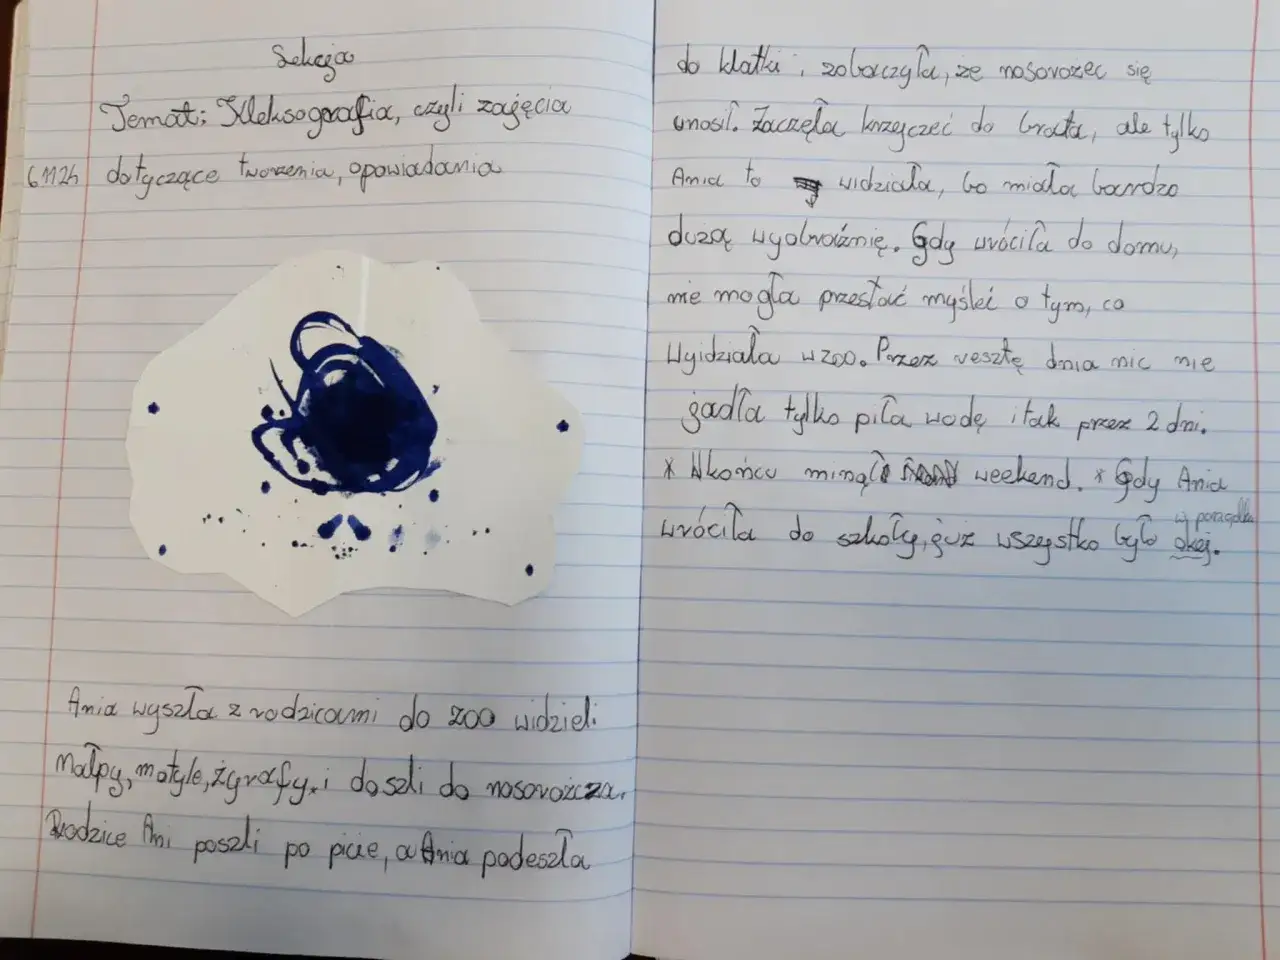 Lekcja
Temat: Kleksografia, czyli zajęcia
dotyczące tworzenia, opowiadania
Ania wyszła z rodzicami do zoo widzieli
małpy, motyle, żyrafy. i doszli do nosorożcza.
Rodzice Ani poszli po picie, a Ania podeszła
do klatki, zobaczyła, że nosorożec się
unosił. Zaczęła krzyczeć do brata, ale tylko
Ania to widziała, bo miała bardzo
dużą wyobraźnię. Gdy wróciła do domu,
nie mogła przestać myśleć o tym, co
wyidziała w zoo. Przez resztę dnia nic nie
jadła tylko piła wodę i tak przez 2 dni.
* Wkońcu minął weekend. * Gdy Ania
w porządku
wróciła do szkoły, już wszystko było okej.